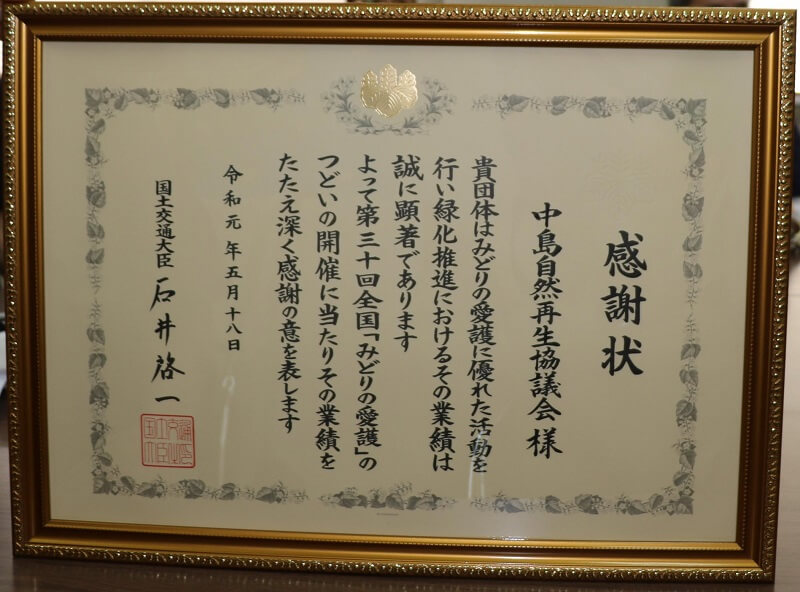 感謝状
中島自然再生協議会様
貴団体はみどりの愛護に優れた活動を
行い緑化推進におけるその業績は
誠に顕著であります
よって第三十回全国「みどりの愛護」の
つどいの開催に当たりその業績を
たたえ深く感謝の意を表します
令和元年五月十八日
国土交通大臣 石井啓一